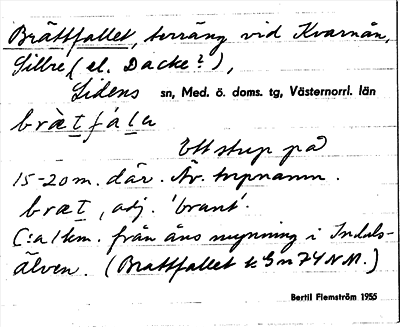 Brättfallet, terräng vid Kvarnån,
Sillre (el. Dacke?),
Lidens sn, Med. ö. doms. tg, Västernorrl. län
brætfala
Ett stup på
15-20 m. där. Är.
bræt, adj. 'brant'.
C:a 1 km. från åns mynning i Indals-
älven. (Brattfallet
Bertil Flemström 1955